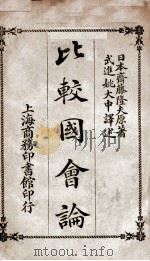 日本齋藤隆夫原著
武進姚大中譯述
比較國會論
上海商務印書館印行
http://mtoou.info/